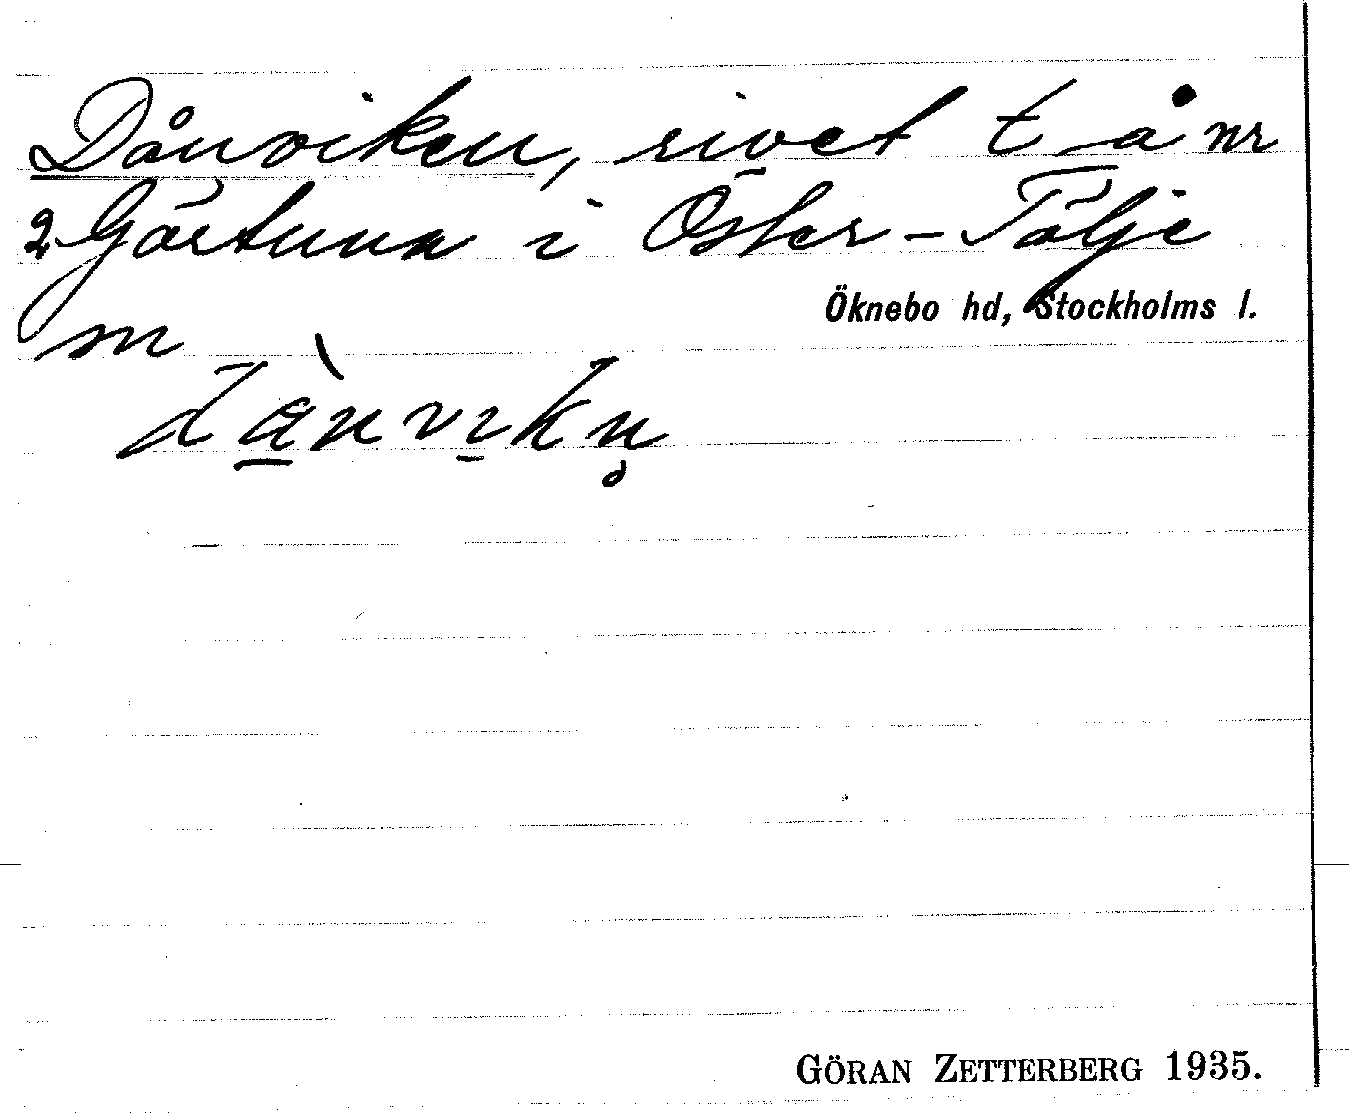 Dånviken, rivet t å nr
2 Gärtuna i Öster-Tälje
Öknebo hd, Stockholms l.
m
dànvikn̥
GÖRAN ZETTERBERG 1935.